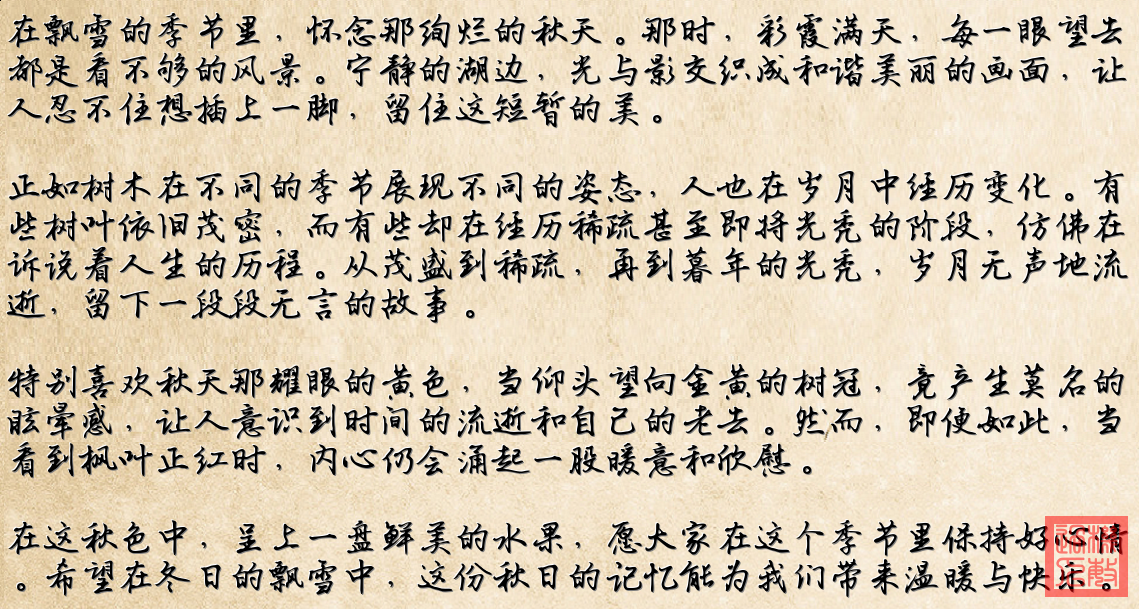 在飘雪的季节里，怀念那绚烂的秋天。那时，彩霞满天，每一眼望去
都是看不够的风景。宁静的湖边，光与影交织成和谐美丽的画面，让
人忍不住想插上一脚，留住这短暂的美。
正如树木在不同的季节展现不同的姿态，人也在岁月中经历变化。有
些树叶依旧茂密，而有些却在经历稀疏甚至即将光秃的阶段，仿佛在
诉说着人生的历程。从茂盛到稀疏，再到暮年的光秃，岁月无声地流
逝，留下一段段无言的故事。
特别喜欢秋天那耀眼的黄色，当仰头望向金黄的树冠，竟产生莫名的
眩晕感，让人意识到时间的流逝和自己的老去。然而，即便如此，当
看到枫叶正红时，内心仍会涌起一股暖意和欣慰。
在这秋色中，呈上一盘鲜美的水果，愿大家在这个季节里保持好心情
。希望在冬日的飘雪中，这份秋日的记忆能为我们带来温暖与快乐。